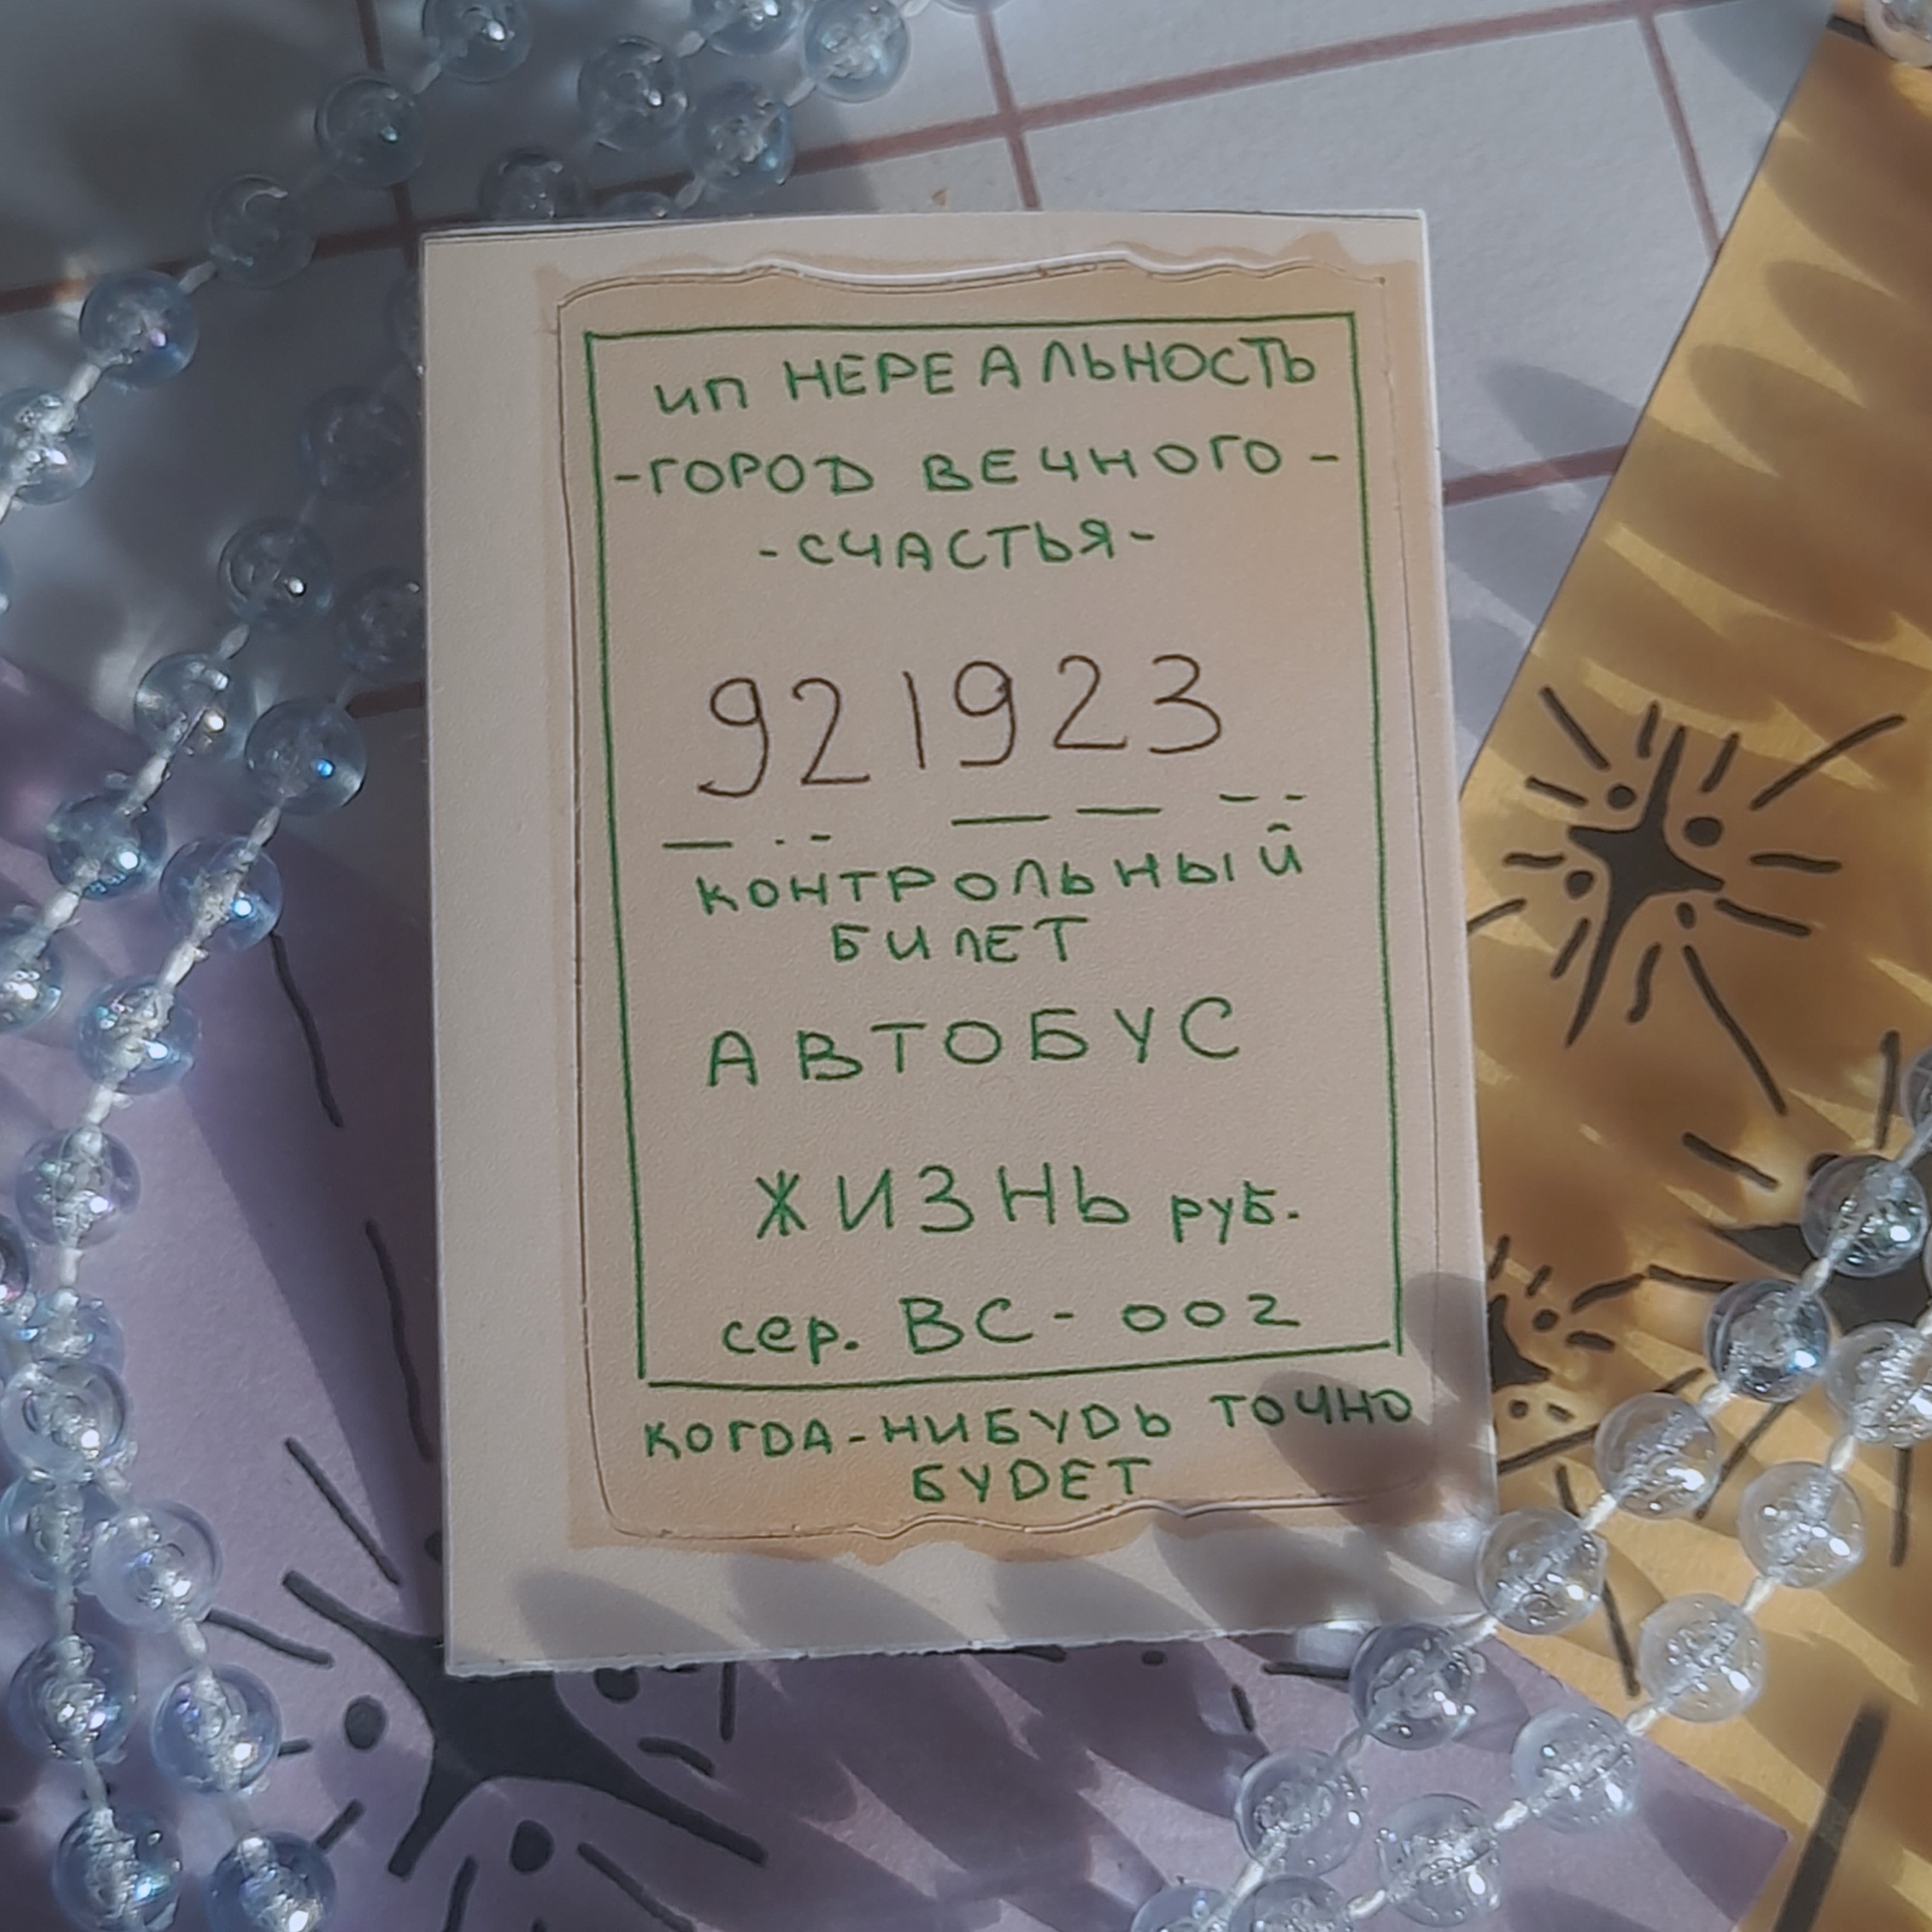 ИП НЕРЕАЛЬНОСТЬ
-ГОРОД ВЕЧНОГО-
-СЧАСТЬЯ-
921923
КОНТРОЛЬНЫЙ
БИЛЕТ
АВТОБУС
ЖИЗНЬ руб.
сер. ВС-002
КОГДА-НИБУДЬ ТОЧНО
БУДЕТ